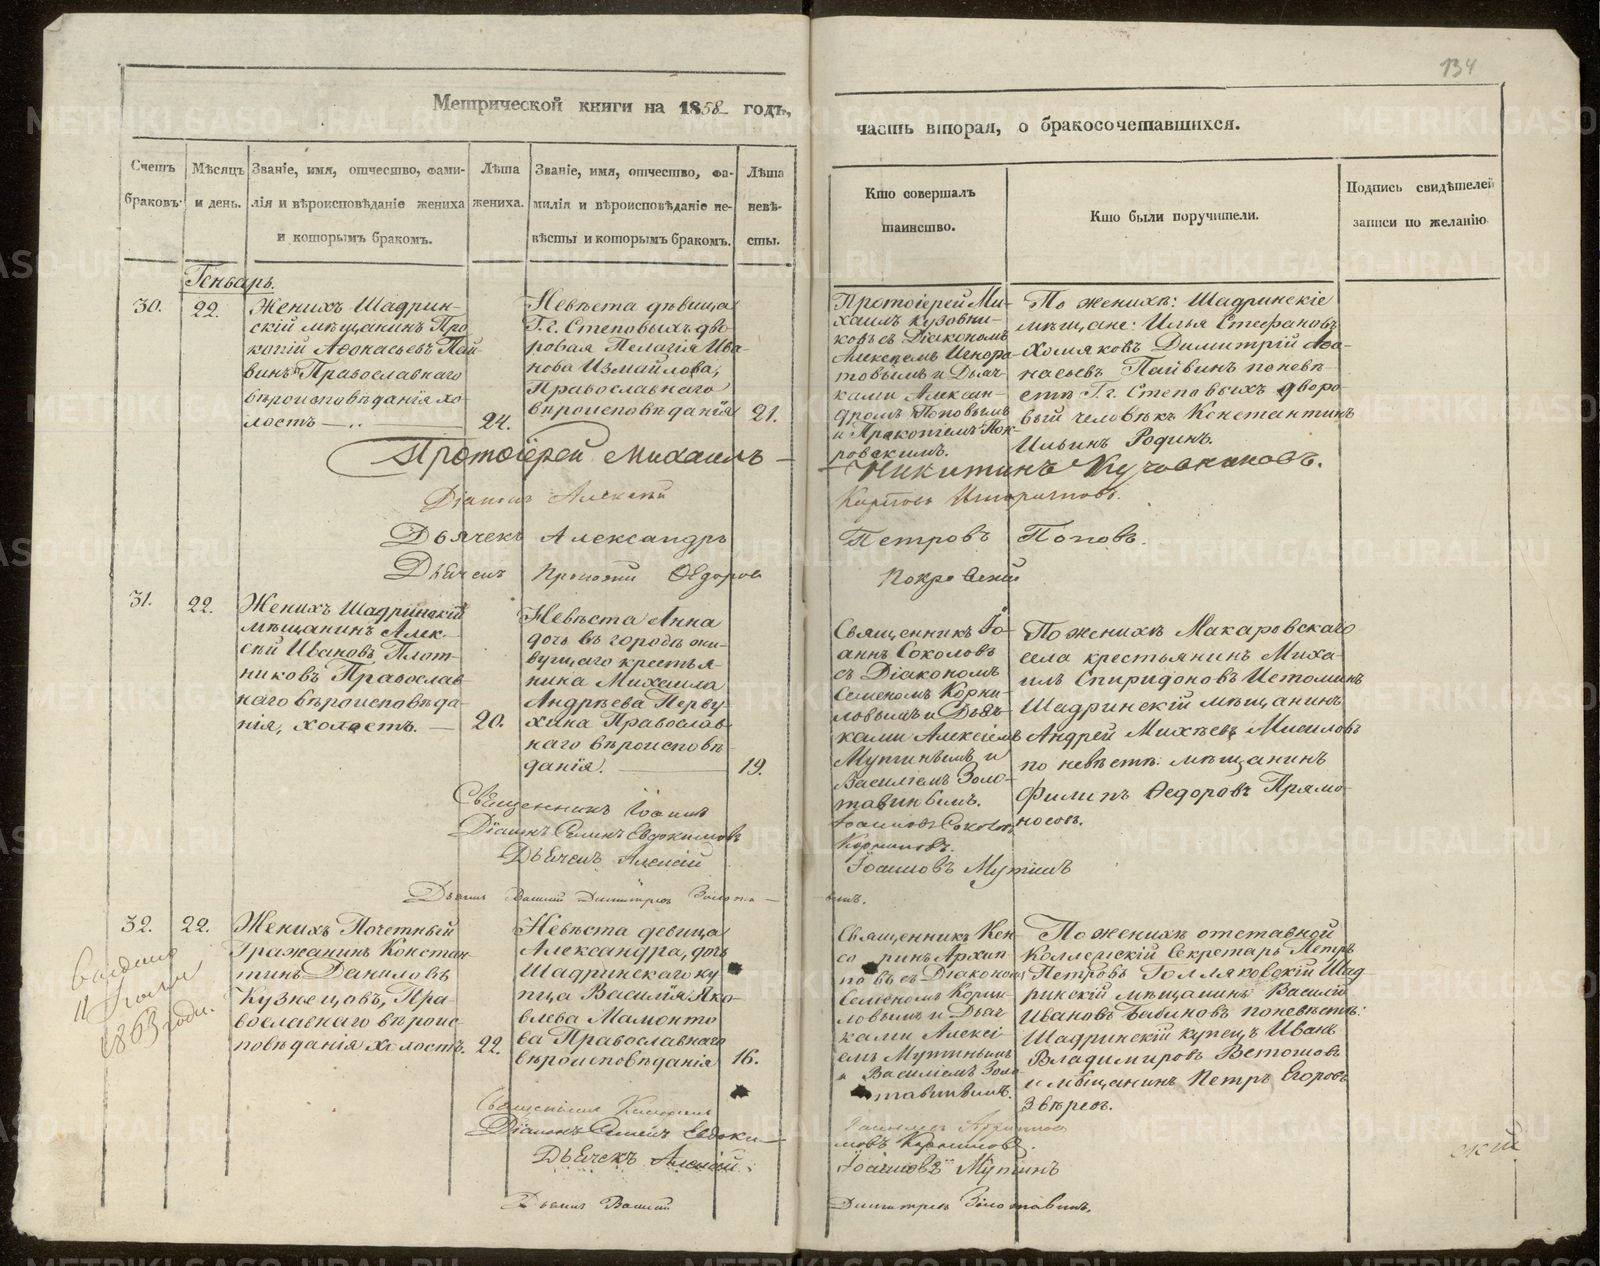 134
Метрической книги на 1858 годъ,
часть вторая, о бракосочетавшихся.
Счетъ браковъ.
Мѣсяцъ и день.
Званіе, имя, отчество, фами-
лія и вѣроисповѣданіе жениха
и которымъ бракомъ.
Лѣта жениха.
Званіе, имя, отчество, фа-
милія и вѣроисповѣданіе не-
вѣсты и которымъ бракомъ.
Лѣта невѣ-
сты.
Кто совершалъ
таинство.
Кто были поручители.
Подпись свидѣтелей
записи по желанію.
Генварь.
30.
22.
Женихъ Шадрин-
скій мѣщанинъ Про
копій Аѳонасьевъ Пай
винъ Православнаго
вѣроисповѣданія хо-
лостъ
24.
Невѣста дѣвица
Г.г. Степовыхъ дво
ровая Пелагія Ива
нова Измайлова,
Православнаго
вѣроисповѣданія
21.
Протоіерей Ми-
хаилъ Кузовни-
ковъ съ Діакономъ
Алексѣемъ Игнора-
товымъ и Дьяч-
ками Алексан-
дромъ Поповымъ
и Прокопіемъ Пок-
ровскимъ.
По женихѣ: Шадринскіе
мѣщане: Илья Стефановъ
Хомяковъ Димитрій Аѳа-
насьевъ Пайвинъ по невѣ-
стѣ Г.г. Степовыхъ дворо-
вый человѣкъ Константинъ
Ильинъ Родинъ.
Протоіерей Михаилъ
Никитинъ Кузовниковъ.
Діаконъ Алексѣй
Дьячекъ Александръ
Петровъ Поповъ.
Дьячекъ Прокопій Ѳедоровъ
Покровскій
31.
22.
Женихъ Шадринскій
мѣщанинъ Алек-
сѣй Ивановъ Плот-
никовъ Православ
наго вѣроисповѣда-
нія, холостъ.
20.
Невѣста Анна
дочь въ городѣ жи-
вущаго крестья-
нина Михаила
Андрѣева Перву
хина Православ-
наго вѣроисповѣ-
данія.
19.
Священникъ Іо-
аннъ Соколовъ
съ Діакономъ
Семеномъ Корни-
ловымъ и Дьяч-
ками Алексіемъ
Мутинымъ и
Василіемъ Золо-
тавинымъ.
По женихѣ Макаровскаго
села крестьянинъ Миха-
илъ Спиридоновъ Истоминъ
Шадринскій мѣщанинъ
Андрей Михѣевъ Мисиловъ
по невѣстѣ: мѣщанинъ
Филипъ Ѳедоровъ Прямо-
носовъ.
Священникъ Іоаннъ
Іоанновъ Соколовъ
Діаконъ Симеонъ Евдокимовъ
Корниловъ.
Дьячекъ Алексій
Іоанновъ Мутинъ
Дьячекъ Василій Димитріевъ Золота-
винъ.
32.
22.
Выдано
11 Іюня
1863 года.
Женихъ Почетный
Гражданинъ Констан
тинъ Даниловъ
Кузнецовъ, Пра-
вославнаго вѣроис-
повѣданія холостъ.
22.
Невѣста девица
Александра, дочь
Шадринскаго ку
пца Василія Яко-
влева Мамонто
ва Православнаго
вѣроисповѣданія
16.
Священникъ Кен-
со ринъ Архип
повъ съ Діакономъ
Семеномъ Корни-
ловымъ и Дьяч-
ками Алексі-
емъ Мутинымъ
и Василіемъ Золо
тавинымъ.
По женихѣ отставной
Коллежскій Секретарь Петръ
Петровъ Голляковскій Шад-
ринскій мѣщанинъ Василій
Ивановъ Бабиновъ по невѣстѣ:
Шадринскій купецъ Иванъ
Владимировъ Ветошовъ
и мѣщанинъ Петръ Егоровъ
Звѣревъ.
Діаконъ Симеонъ Евдоки-
мовъ Корниловъ.
Дьячекъ Алексій
Іоанновъ Мутинъ
Дьячекъ Василій
Димитріевъ Золотавинъ.
ской
METRIKI.GASO-URAL.RU